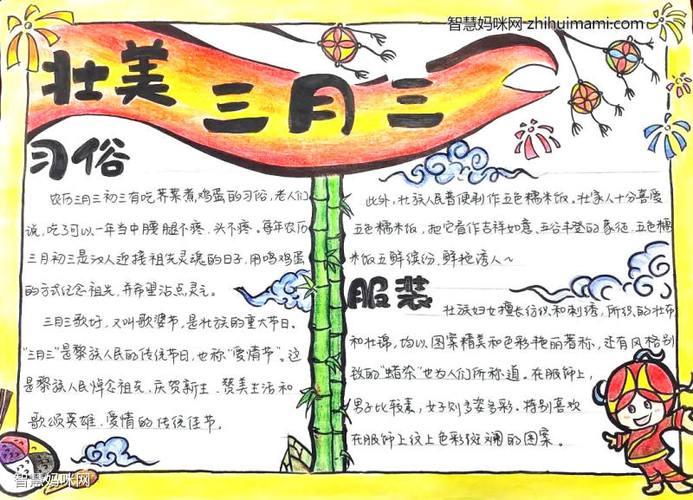 智慧妈咪网-zhihuimami.com
壮美 三月三
习俗
农历三月三初三有吃荠菜煮鸡蛋的习俗,老人们
说,吃了可以一年当中腰腿不疼、头不疼。每年农历
三月初三是汉人迎接祖先灵魂的日子,用鸣鸡蛋
的方式纪念祖先,并希望沾点灵气。
三月三歌好,又叫歌婆节,是壮族的重大节日。
“三月三”是黎族人民的传统节日,也称“爱情节”。这
是黎族人民悼念祖先、庆贺新生、赞美生活和
歌颂英雄、爱情的传统佳节。
此外,壮族人民喜便制作五色糯米饭。壮家人十分喜爱
五色糯米饭,把它看作吉祥如意、五谷丰登的象征,五色糯
米饭五鲜缤纷,鲜艳诱人~
服装
壮族妇女擅长纺织和刺绣,所织的壮布
和壮锦,均以图案精美和色彩艳丽著称,还有风格别
致的“蜡染”也为人们所称道。在服饰上,
男子比较素,女子则多姿多彩。特别喜欢
在服饰上纹上色彩斑斓的图案。
智慧妈咪网